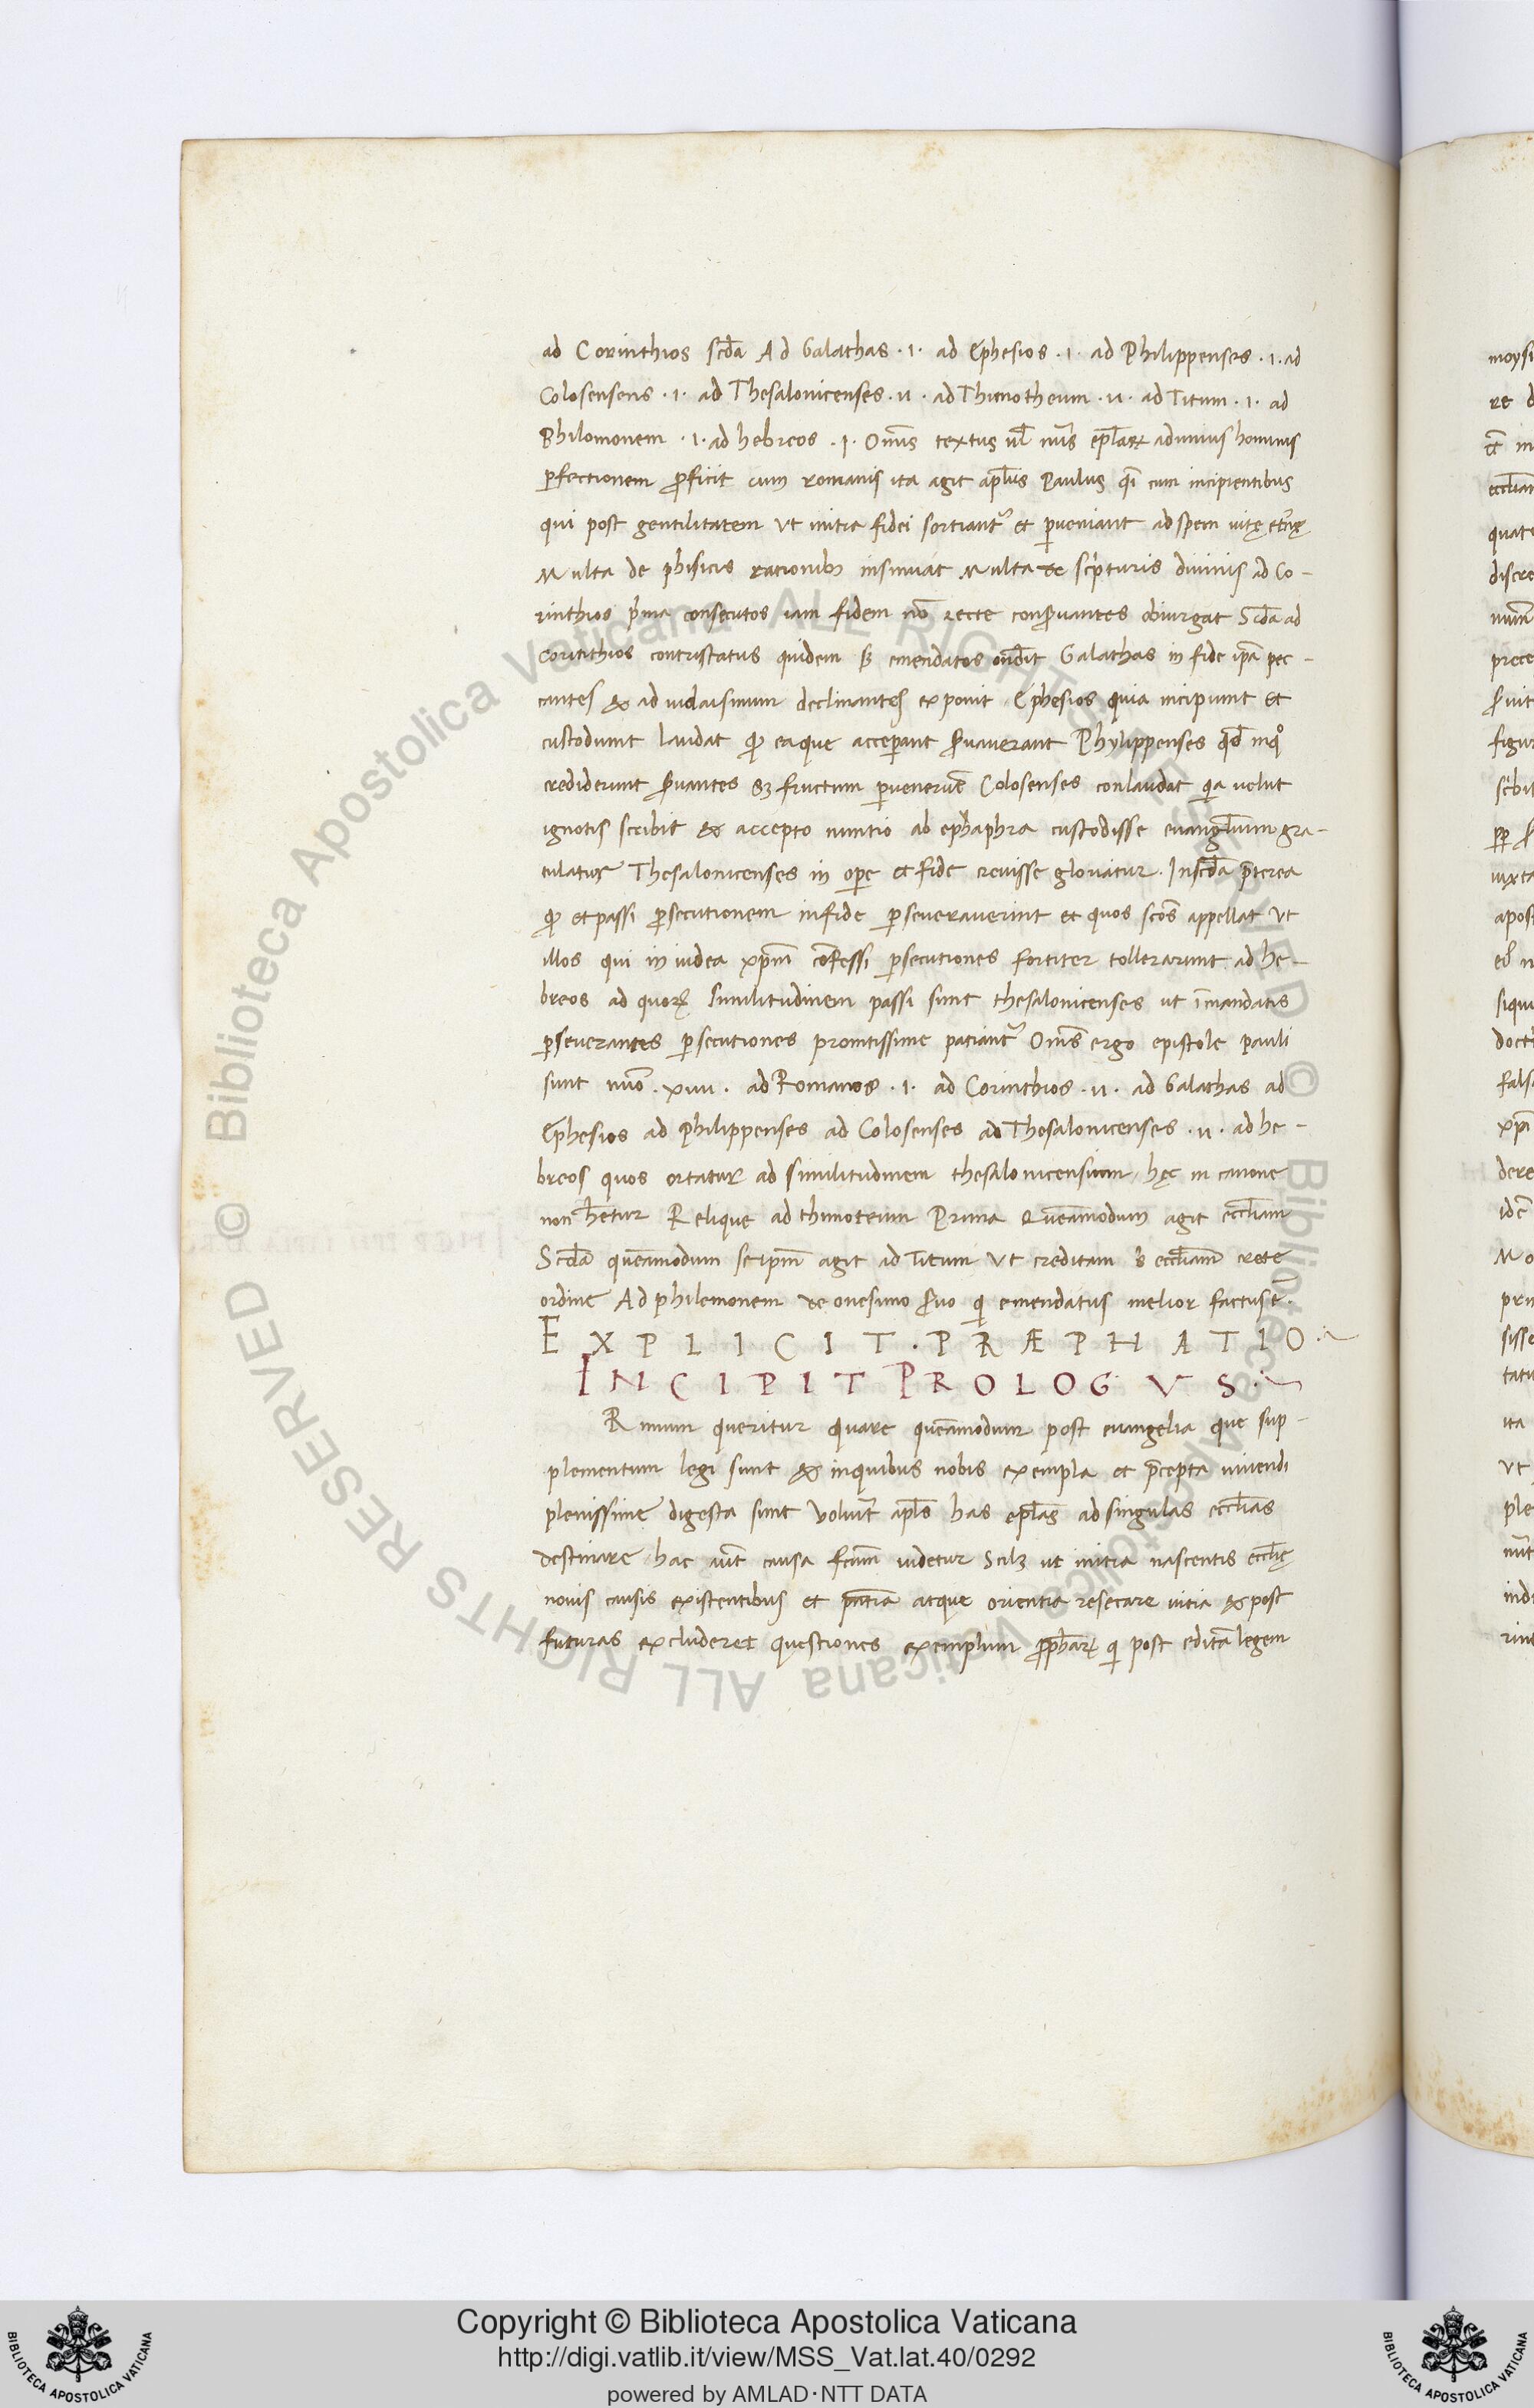 ad Corinthios scđa Ad Galathas · I · ad Ephesios · I · ad Philippenses · I · ad
Colosensens · I · ad Thesalonicenses · II · ad Thimotheum · II · ad Titum · I · ad
Philomonem · I · ad hebreos · I · Om̄s textus ul̄ nūs ep̄laꝝ ad unius hominis
ꝑfectionem ꝓficit cum romanis ita agit apl̄us Paulus q̄i cum incipientibus
qui post gentilitatem Ut initia fidei sortiant᷑ et ꝑveniant ad spem uitę et̄nę
Multa de phisicis rationib; insinuat Multa de scͥpturis diuinis ad Co-
rinthios pͥma consecutos iam fidem nō recte conseruantes obiurgat Scđa ad
corinthios contristatus quidem sꝫ emendatos on̄dit Galathas in fide ip̄a pec-
cantes & ad iudaismum declinantes exponit Ephesios quia incipiunt et
custodiunt laudat ꝙ ea que acceꝑant seruauerant Phylippenses qđ in qͦ
crediderunt seruantes &; fructum ꝑuenerūt Colosenses conlaudat qͥa uelut
ignotis scribit & accepto nuntio ab ephaphra custodisse euangl̄ium gra-
tulatur Thesalonicenses in oꝑe et fide creuisse gloriatur · In scđa p̄terea
ꝙ et passi ꝑsecutionem in fide ꝑseuerauerint et quos sc̄os appellat Ut
illos qui in iudea xp̄m cōfessi ꝑsecutiones fortiter tollerarunt ad he-
breos ad quorꝝ similitudinem passi sunt thesalonicenses ut ī mandatis
ꝑseuerantes ꝑsecutiones promtissime patiant᷑ Om̄s ergo epistole pauli
sunt nūo · XIIII · ad Romanos · I · ad Corinthios · II · ad Galathas ad
Ephesios ad Philippenses ad Colosenses ad Thesalonicenses · II · ad he-
breos quos ortatur ad similitudinem thesalonicensium hęc in canone
non h̄etur Relique ad thimoteum Prima Quēamodum agit eccl̄iam
Scđa quēamodum seip̄m agit ad Titum Ut creditam s̄ eccl̄iam crete
ordine Ad philemonem de onesimo seruo qͥ emendatus melior factus ē ·
EXPLICIT · PRÆPHATIO
INCIPIT PROLOGVS
Rimum queritur quare quēamodum post euangelia que sup-
plementum legi sunt & in quibus nobis exempla et p̄cepta uiuendi
plenissime digesta sunt Voluit apl̄s has epl̄as ad singulas eccl̄ias
destinare hac aut̄ causa fc̄um uidetur Scilꝫ ut initia nascentis eccl̄ię
nouis causis existentibus et p̄ntia atque orientia resecare uitia & post
futuras excluderet questiones exemplum ꝓph̄arꝝ qͥ post editā legem
Copyright © Biblioteca Apostolica Vaticana
http://digi.vatlib.it/view/MSS_Vat.lat.40/0292
powered by AMLAD·NTT DATA